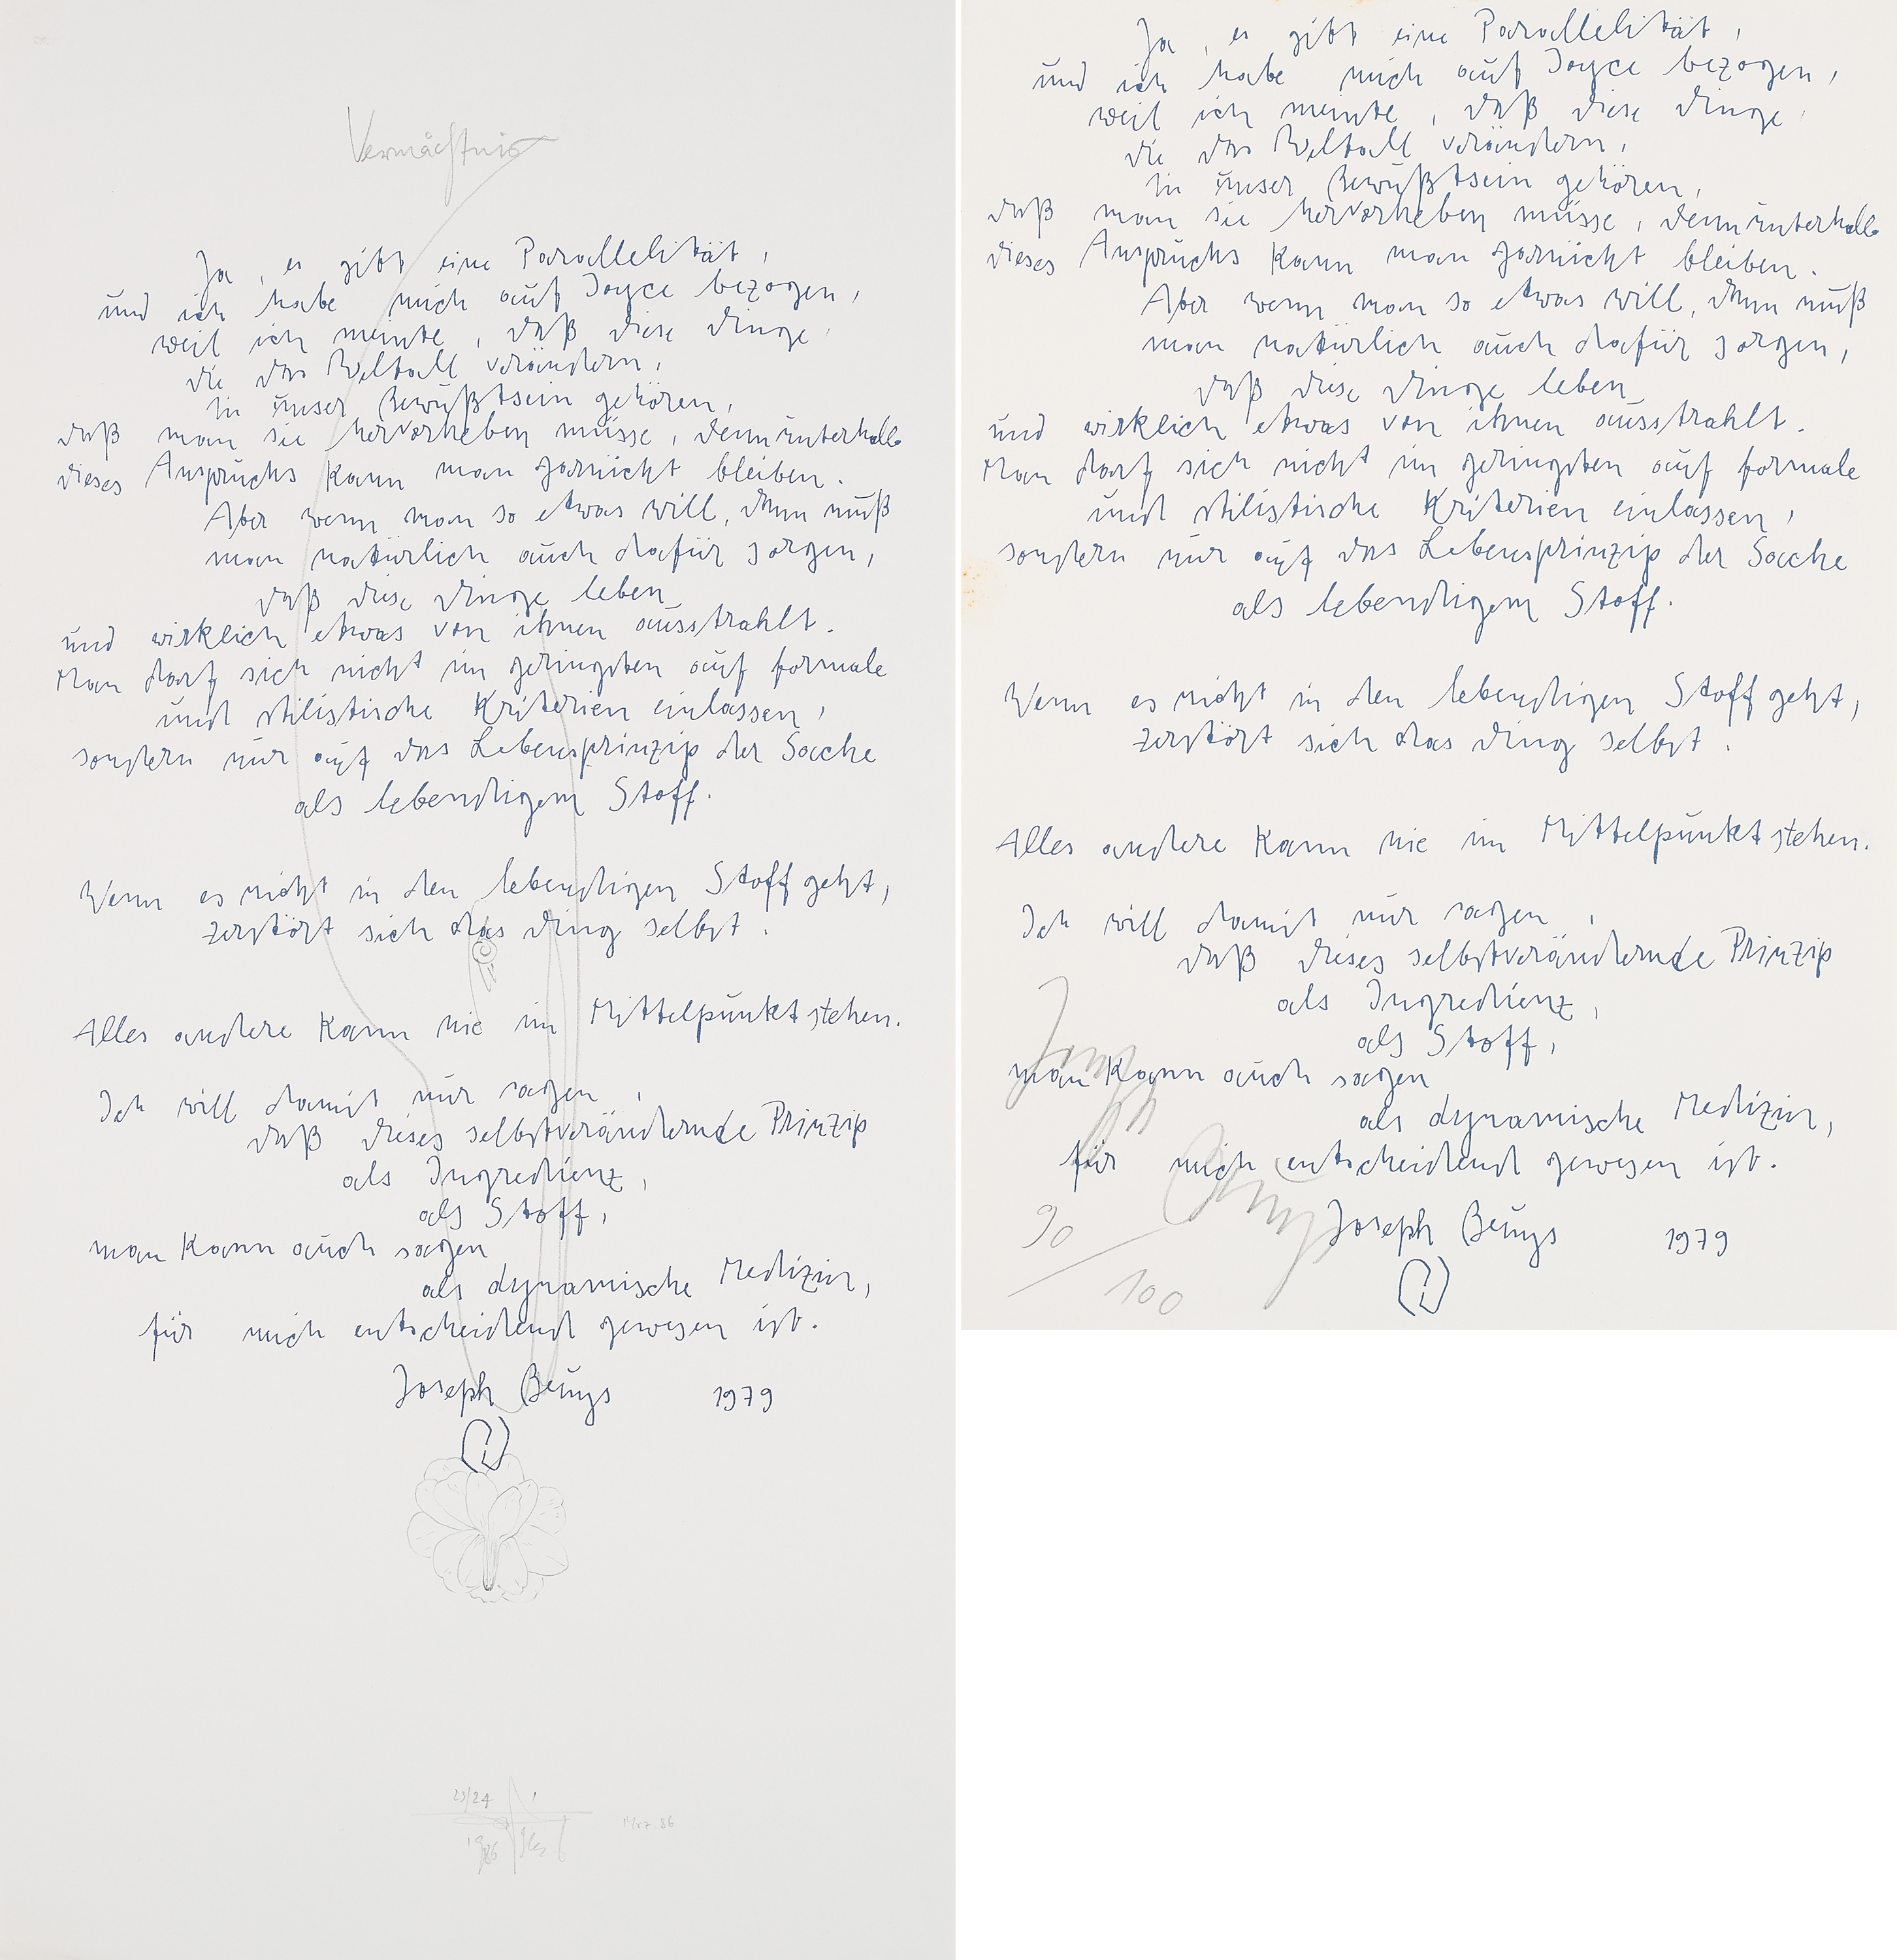 Vermächtnis
Ja, es gibt eine Parallelität,
und ich habe mich auf Joyce bezogen,
weil ich meinte, daß diese Dinge,
die das Weltall verändern,
in unser Bewußtsein gehören,
daß man sie hervorheben müsse, denn unterhalb
dieses Anspruchs kann man garnicht bleiben.
Aber wenn man so etwas will, dann muß
man natürlich auch dafür sorgen,
daß diese Dinge leben
und wirklich etwas von ihnen ausstrahlt.
Man darf sich nicht im geringsten auf formale
und stilistische Kriterien einlassen,
sondern nur auf das Lebensprinzip der Sache
als lebendigem Stoff.
Wenn es nicht in den lebendigen Stoff geht,
zerstört sich das Ding selbst.
Alles andere kann nie im Mittelpunkt stehen.
Ich will damit nur sagen,
daß dieses selbstverändernde Prinzip
als Ingredienz,
als Stoff,
man kann auch sagen
als dynamische Medizin,
für mich entscheidend gewesen ist.
Joseph Beuys 1979
23/24
1986
Ja, es gibt eine Parallelität,
und ich habe mich auf Joyce bezogen,
weil ich meinte, daß diese Dinge,
die das Weltall verändern,
in unser Bewußtsein gehören,
daß man sie hervorheben müsse, denn unterhalb
dieses Anspruchs kann man garnicht bleiben.
Aber wenn man so etwas will, dann muß
man natürlich auch dafür sorgen,
daß diese Dinge leben
und wirklich etwas von ihnen ausstrahlt.
Man darf sich nicht im geringsten auf formale
und stilistische Kriterien einlassen,
sondern nur auf das Lebensprinzip der Sache
als lebendigem Stoff.
Wenn es nicht in den lebendigen Stoff geht,
zerstört sich das Ding selbst.
Alles andere kann nie im Mittelpunkt stehen.
Ich will damit nur sagen,
daß dieses selbstverändernde Prinzip
als Ingredienz,
als Stoff,
man kann auch sagen
als dynamische Medizin,
für mich entscheidend gewesen ist.
Joseph Beuys 1979
Joseph Beuys
90/100